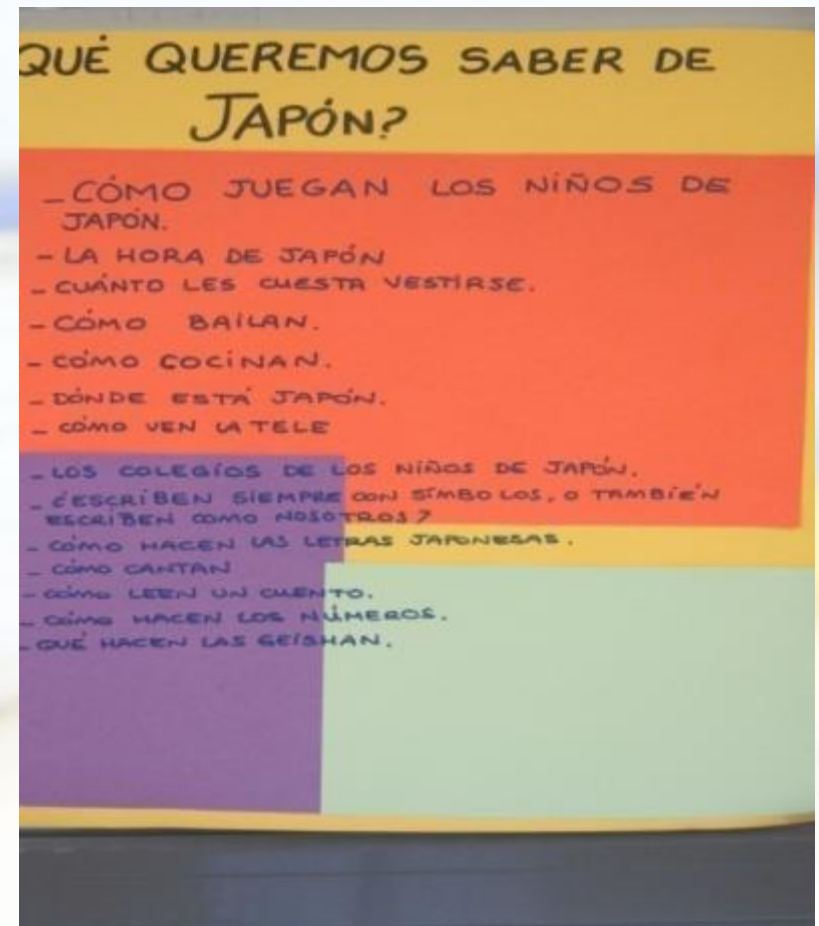 QUÉ QUEREMOS SABER DE
JAPÓN?
_CÓMO JUEGAN LOS NIÑOS DE
JAPÓN.
- LA HORA DE JAPÓN
_ CUÁNTO LES CUESTA VESTIRSE.
- CÓMO BAILAN.
- CÓMO COCINAN.
_ DÓNDE ESTÁ JAPÓN.
_ CÓMO VEN LA TELE
_ LOS COLEGIOS DE LOS NIÑOS DE JAPÓN.
_ ¿ESCRIBEN SIEMPRE CON SÍMBOLOS, O TAMBIÉN
ESCRIBEN COMO NOSOTROS?
- CÓMO HACEN LAS LETRAS JAPONESAS.
_ CÓMO CANTAN
- CÓMO LEEN UN CUENTO.
_ CÓMO HACEN LOS NÚMEROS.
_ QUÉ HACEN LAS GEISHAN.